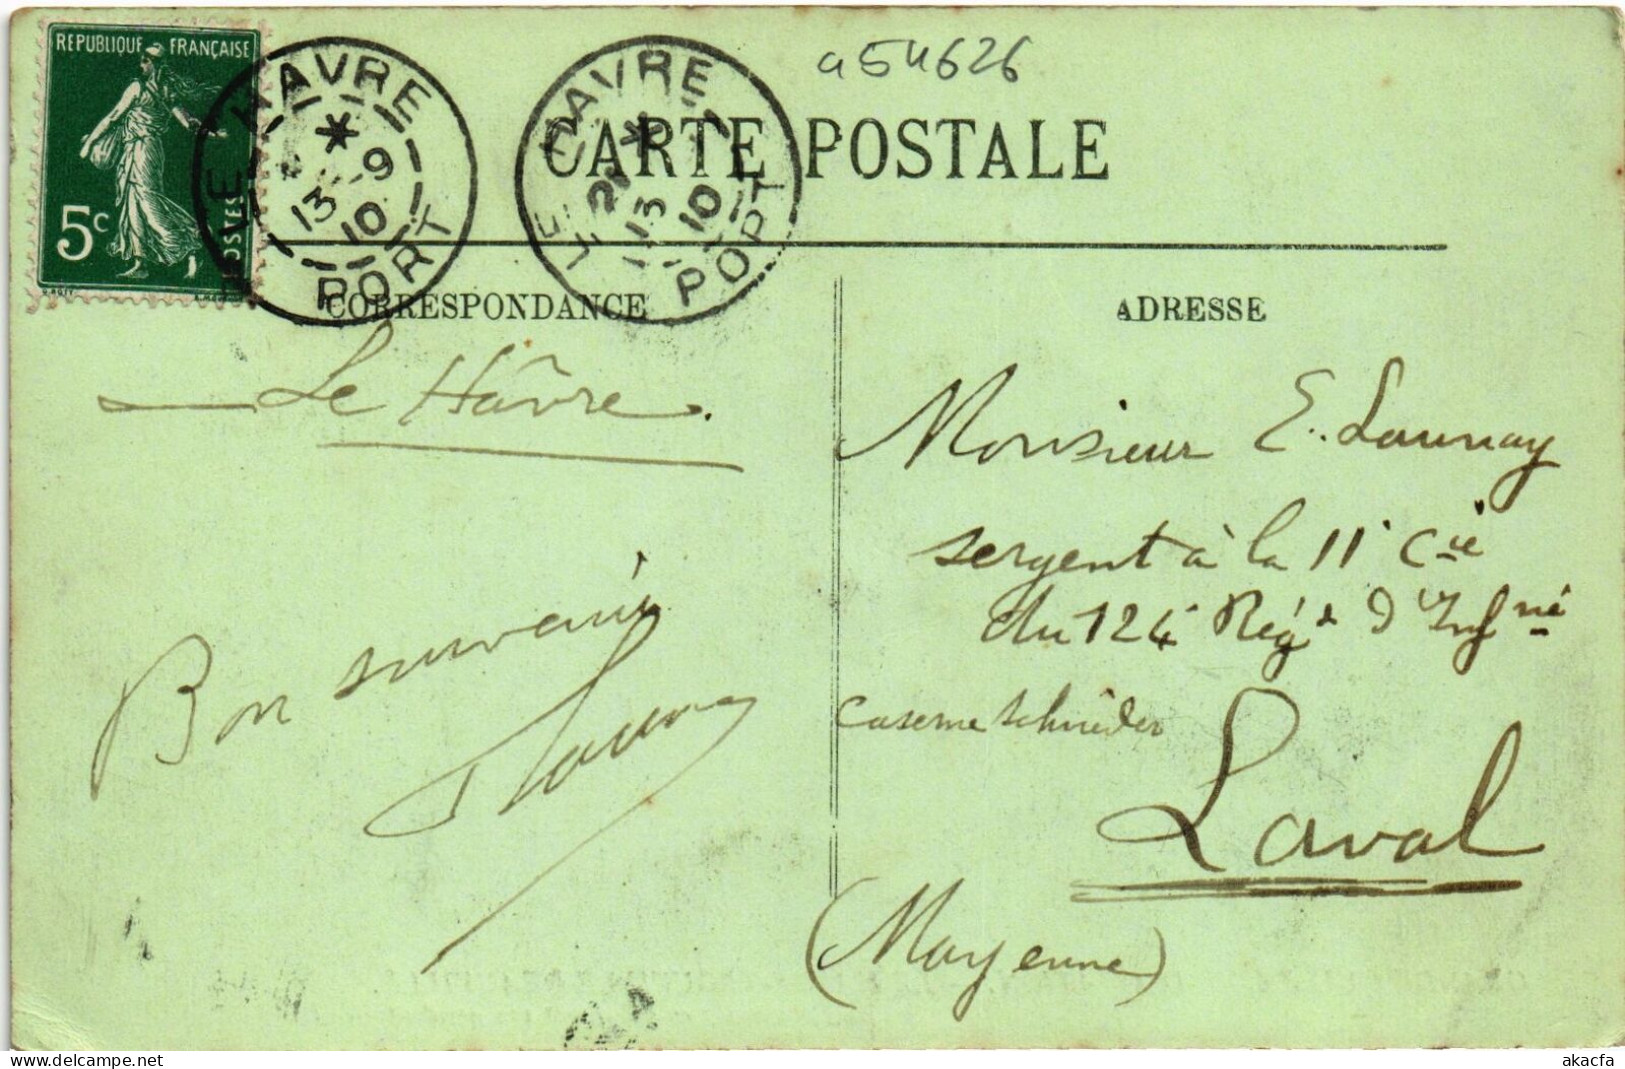 a54626
REPUBLIQUE FRANÇAISE
5c
POSTES
LE HAVRE
13 -9
10
PORT
LE HAVRE
13
10
PORT
CARTE POSTALE
CORRESPONDANCE
ADRESSE
Le Hâvre.
Bon souvenir
Monsieur E. Launay
sergent à la 11e Cie
du 124e Régt d'Infrie
caserne Schnéider
Laval
(Mayenne)
akacfa
www.delcampe.net